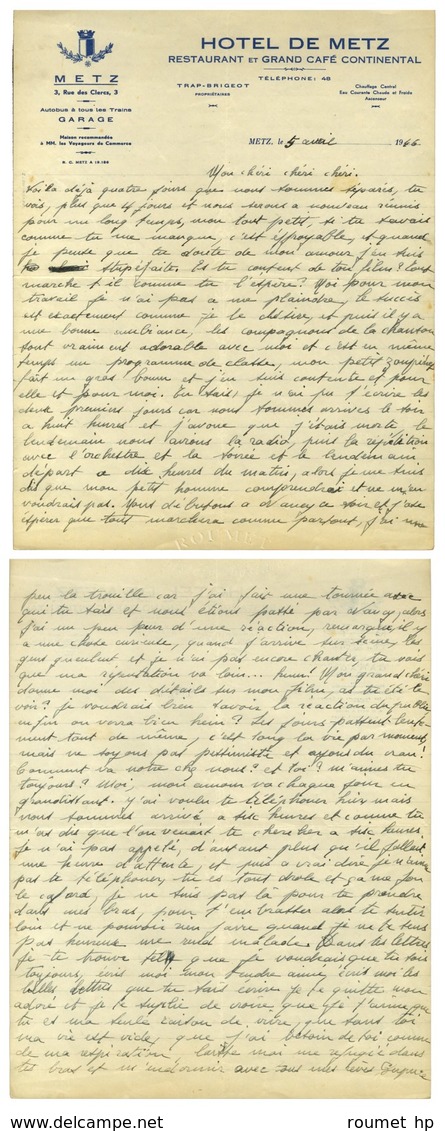 HOTEL DE METZ
RESTAURANT ET GRAND CAFÉ CONTINENTAL
TÉLÉPHONE: 48
METZ
3, Rue des Clercs, 3
Autobus à tous les Trains
GARAGE
Maison recommandée
à MM. les Voyageurs de Commerce
R. C. METZ A
TRAP-BRIGEOT
PROPRIÉTAIRES
Chauffage Central
Eau Courante Chaude et Froide
Ascenseur
METZ, le 5 avril 1946
Mon chéri chéri chéri.
Voilà déjà quatre jours que nous sommes séparés, tu
vois, plus que 4 jours et nous serons à nouveau réunis
pour un long temps, mon tout petit, si tu savais
comme tu me manque, c'est effroyable, et quand
je pense que tu doute de mon amour j'en suis
stupéfaite. Es tu content de ton films? Cela
marche t'il comme tu l'espère? Moi pour mon
travail je n'ai pas a me plaindre, le succès
est exactement comme je le désire, et puis il y a
une bonne ambiance, les compagnons de la chanson
sont vraiment adorable avec moi et c'est en même
temps un programme de classe, mon petit
fait un gros boum et j'en suis contente et pour
elle et pour moi. Tu sais, je n'ai pu t'écrire les
deux premiers jours car nous sommes arrivés le soir
a huit heures et j'avoue que j'étais morte, le
lendemain nous avons la radio, puis la répétition
avec l'orchestre et la soirée et le lendemain
départ a dix heures du matin, alors je me suis
dis que mon petit homme comprendrai et ne m'en
voudrais pas. Nous débutons a Nancy ce soir et j'ose
espérer que tout marchera comme partout, j'ai une
peu la trouille car j'ai fait une tournée avec
qui tu sais et nous étions passé par Nancy, alors
j'ai un peu peur d'une réaction, remarque il y
a une chose curieuse, quand j'arrive sur scène, les
gens gueulent et je n'ai pas encore chanter, tu vois
que ma réputation va loin... hum! Mon grand chéri
donne moi des détails sur mon frère, as tu été le
voir? Je voudrais bien savoir la réaction du public
enfin on verra bien hein? Les jours passent lente-
ment tout de même, c'est long la vie par moment,
mais ne soyons pas pessimiste et ayons du cran!
Comment va notre chez nous? et toi? m'aimes tu
toujours? Moi, mon amour va chaque jour en
grandissant. J'ai voulu te téléphoner hier mais
nous sommes arrivé a six heures et comme tu
m'as dis que l'on venait te chercher a six heures
je n'ai pas appelé, d'autant plus qu'il fallait
une heure d'attente et puis a vrai dire je n'aime
pas te téléphoner, tu es tout drôle et ça me fou
le cafard, je ne suis pas là pour te prendre
dans mes bras, pour t'embrasser alors te sentir
loin et ne pouvoir rien faire quand je ne te sens
pas heureux me rend malade. Dans tes lettres
je te trouve tel que je voudrais que tu sois
toujours, écris moi mon tendre aimé, écris moi les
belles lettres que tu sais écrire. Je te quitte mon
adoré et je te supplie de croire que je t'aime que
tu es ma seule raison de vivre, que sans toi
ma vie est vide, que j'ai besoin de toi comme
de ma respiration, laisse moi me réfugié dans
tes bras et m'endormir avec sous mes lèvres